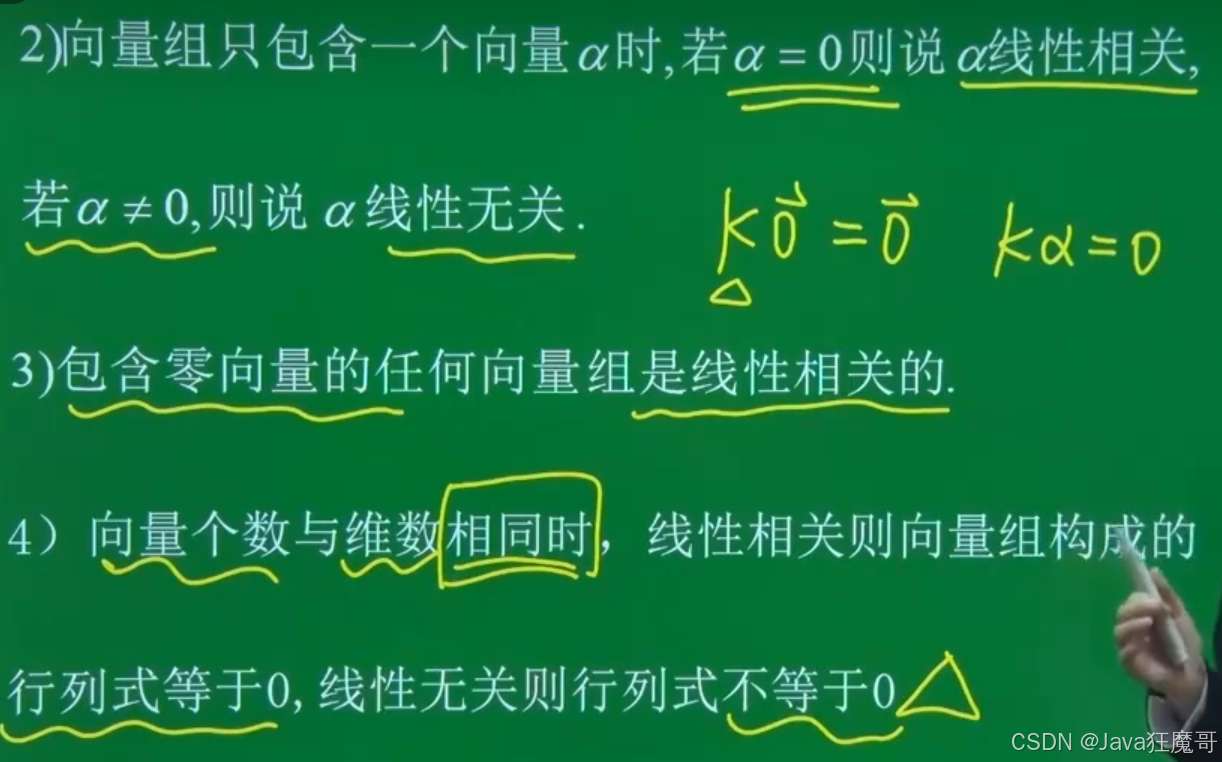 2)向量组只包含一个向量α时,若α = 0则说α线性相关,
若α ≠ 0,则说 α线性无关.
k0⃗ = 0⃗  kα = 0
3)包含零向量的任何向量组是线性相关的.
4）向量个数与维数相同时，线性相关则向量组构成的
行列式等于0, 线性无关则行列式不等于0
CSDN @Java狂魔哥